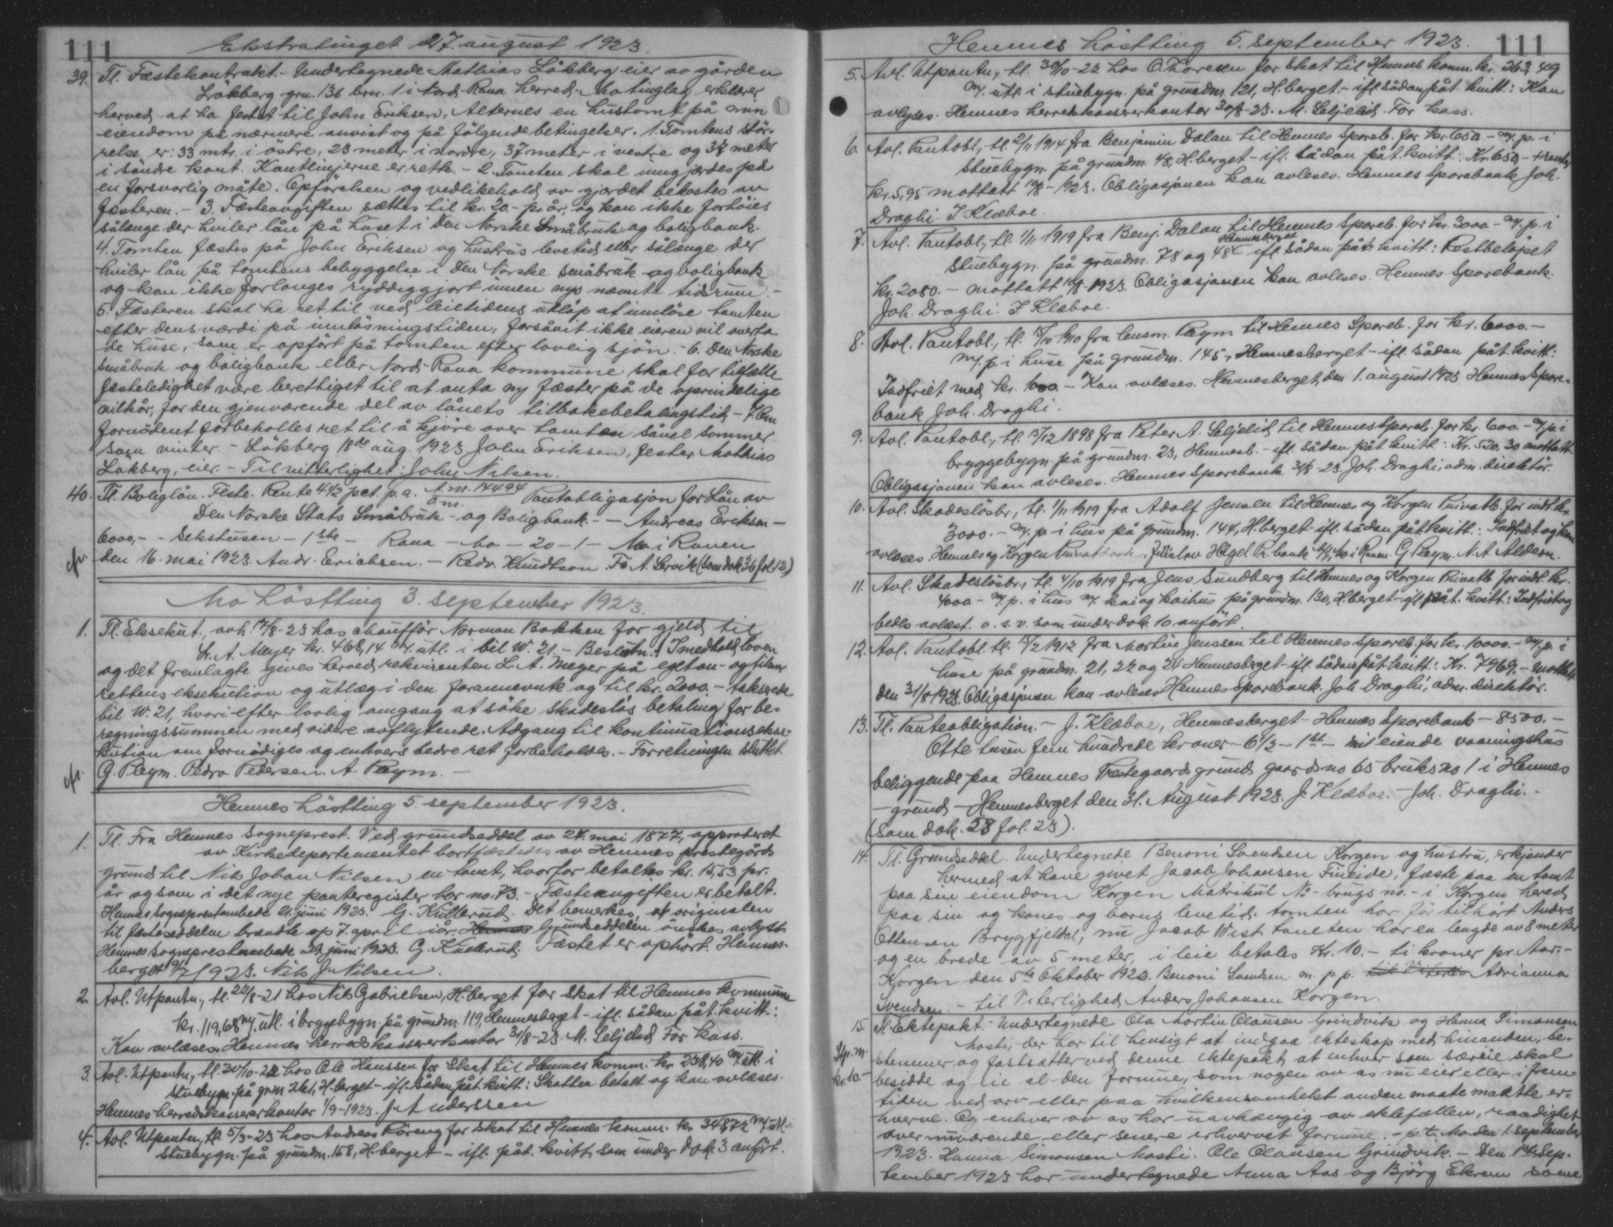 111
Ekstratinget 27. august 1923.
39. Tl. Fæstekontrakt. Undertegnede Mathias Løkberg eier av gården
Løkberg gnr. 136 brn. 1 i Nord Rana herred erklærer
herved at ha festet til John Eriksen, Alternes en hustomt på min
eiendom på nærmere anvist og på følgende betingelser. 1. Tomtens stør-
relse er: 33 mtr. i østre, 23 meter i nordre, 37 meter i vestre og 37 meter
i søndre kant. Kantlinjerne er rette. - 2. Tomten skal inngjerdes på
en forsvarlig måte. Opførelsen og vedlikehold av gjerdet bekostes av
fæsteren. - 3. Fæsteavgiften sættes til kr. 20 - pr. år, og kan ikke forhøies
sålenge der hviler lån på huset i Den Norske Småbruk og boligbank.
4. Tomten fæstes på John Eriksen og hustrus levetid eller sålenge der
hviler lån på tomtens bebyggelse i Den Norske småbruk og boligbank
og kan ikke forlanges ryddiggjort innen nys nævnte tidsrum. -
5. Fæsteren skal ha ret til ved leietidens utløp at innløse tomten
efter dens værdi på innløsningstiden, forsåvit ikke eieren vil overta
de huse, som er opført på tomten efter lovlig skjøn. - 6. Den Norske
småbruk og boligbank eller Nord-Rana kommune skal for tilfælle
fæsteledighet være berettiget til at anta ny fæster på de oprindelige
vilkår, for den gjenværende del av lånets tilbakebetalingstid - 7. Om
fornødent forbeholdes ret til å kjøre over tomten såvel sommer
som vinter. - Løkberg 18de aug. 1923 John Eriksen, fester Mathias
Løkberg, eier. - Til vitterlighet: John Nilsen
40. Tl. Boliglån. Feste. Rente 4 1/2 pct. p.a. A.m. 14494 Pantobligasjon for Lån av
Den Norske Stats Småbruk- og Boligbank - Andreas Eriksen -
6000,- - Sekstusen - 1ste - Rana - - 20 - 1 - Mo i Ranen
den 16. mai 1923. Andr. Erichsen. - Redv. Knudtson. (Som dok 36 fol 12)
Mo høstting 3. september 1923.
1. Tl. Eksekut., avh. 17/8-23 hos chauffør Norman Bakken for gjeld til
L. A. Meyer kr. 468,14 m. utl. i bil W. 21. - Beslutn.: I medhold loven
og det fremlagte gives herved rekvirenten L. A. Meyer på
rettens eksekution og utlæg i den forannevnte og til kr. 2000.- takserede
bil W. 21, hvori efter lovlig omgang at søke skadesløs betaling for be-
regningssummen med videre avflytende. Adgang til kontinuationsekse-
kution om fornødiges og enhvers bedre ret forbeholdes. - Forretningen sluttet
G. Pleym. Pedro Pedersen. A. Pleym. -
Hemnes høstting 5 september 1923.
1. Tl. Fra Hemnes sogneprest. Ved grundseddel av 24. mai 1877, approberet
av Kirkedepartementet bortfæstedes av Hemnes prestegårds
grund til Nils Johan Nilsen en tomt, hvorfor betaltes kr. 15,53 pr.
år og som i det nye panteregister har no. 73. - Fæsteavgiften er betalt.
Hemnes sogneprestembede 21. juni 1923. G. Kullerud. Det bemerkes, at originalen
til fæsteseddelen brændte op 7. april iår. Grundseddelen ønskes avlyst.
Hemnes sogneprestembede 22. juni 1923. G. Kullerud. Fæstet er ophørt. Hemnes-
berget 9/7 1923. Nils J. Nilsen.
2. Avl. Utpantn., tl. 22/8-21 hos Nils Gabrielsen, H.berget for skat til Hemnes kommune
kr. 119,68 m. utl. i bryggebygn. på grundnr. 119, Hemnesberget - ifl. sådan påt. kvitt.:
Kan avlæses. Hemnes herredskasserkontor 31/8-23. M. Seljelid. For kass.
3. Avl. Utpantn., tl. 30/10-22 hos Ole Hanssen for skat til Hemnes komm. kr. 258,40 m. utl. i
stuebygn. på grnr. 261, H.berget - ifl. sådan påt. kvitt: Skatten betalt og kan avlæses.
Hemnes herredskasserkontor 1/9-1923. J. Anderssen
4. Avl. Utpantn., tl. 5/3-23 hos Andreas Røreng for skat til Hemnes komm. kr. 348,72 m. utl. i
stuebygn. på grundnr. 158, H.berget - ifl. påt. kvitt. som under dok. 3 anført.
111
Hemnes høstting 5. september 1923.
5. Avl. Utpantn., tl. 30/10-22 hos O. Thoresen for skat til Hemnes komm. kr. 263,49
m. utl. i stuebygn. på grundnr. 121, H.berget - ifl. sådan påt. kvitt: Kan
avlyses. Hemnes herredskasserkontor 30/8-23. M. Seljelid. For kass.
6. Avl. Pantobl., tl. 2/11 1914 fra Benjamin Dalan til Hemnes Spareb. for kr. 650 - m. p. i
stuebygn. på grundnr. 48, H.berget - ifl. sådan påt. kvitt.: Kr. 650 + renter
kr. 5,95 mottatt 1923. Obligasjonen kan avleses. Hemnes Sparebank Joh.
Draghi. J Klæboe.
7. Avl. Pantobl., tl. 1/11 1919 fra Benj. Dalan til Hemnes Spareb. for kr. 3000 - m. p. i
stuebygn. på grundnr. 78 og 48 Hemnesberget ifl. sådan påt. kvitt: Restbeløpet
kr. 2080. - mottatt 1923. Obligasjonen kan avleses. Hemnes Sparebank.
Joh. Draghi. J Klæboe.
8. Avl. Pantobl., tl. 15/10 1910 fra lensm. Pleym til Hemnes Spareb. for kr. 6000.-
m. p. i huse på grundnr. 145, Hemnesberget - ifl. sådan påt. kvitt:
Indfriet med kr. 600 - Kan avlæses. Hemnesberget, den 1. august 1923 Hemnes Spare-
bank Joh. Draghi.
9. Avl. Pantobl., tl. 15/12 1898 fra Peter A. Seljelid til Hemnes Spareb. for kr. 600.- m. p. i
bryggebygn. på grundnr. 23, Hemnesb. - ifl. sådan påt. kvitt: Kr. 520,30 mottatt.
Obligasjonen kan avleses. Hemnes Sparebank 31/8-23. Joh. Draghi, adm. direktør.
10. Avl. Skadesløsbr., tl. 1/11 1919 fra Adolf Jensen til Hemnes og Korgen Privatb. for indtil kr.
3000.- m. p. i hus på grundnr. 144, H.berget - ifl. sådan påt. kvitt: Indfriet og kan
avleses. Hemnes og Korgen Privatbank, Mo i Rana. G. Pleym. A. A.
11. Avl. Skadesløsbr., tl. 4/10 1919 fra Jens Sundberg til Hemnes og Korgen Privatb. for indtil kr.
4000 - m. p. i hus m. kai og kaihus på grundnr. 130, H.berget - ifl. påt. kvitt: Indfriet og
bedes avlæst. o. s. v. som under dok. 10 anført.
12. Avl. Pantobl. tl. 15/2 1912 fra Martin Jenssen til Hemnes Spareb. for kr. 10000 - m. p. i
huse på grundnr. 21, 22 og 24 Hemnesberget - ifl. sådan påt. kvitt: Kr. 7969,- mottatt.
den 31/8 1923. Obligasjonen kan avleses Hemnes Sparebank. Joh. Draghi, adm. direktør.
13. Tl. Panteobligation. - J. Klæboe, Hemnesberget - Hemnes Sparebank - 8500. -
Otte tusen fem hundrede kroner - 6 1/2 - 1ste - mit eiende vaaningshus
beliggende paa Hemnes Prestegaards grund gaardsno 65 bruksno 1 i Hemnes
- grund - Hemnesberget den 31. August 1923. J. Klæboe. - Joh. Draghi. -
(Som dok. 28 fol. 23).
14. Tl. Grundseddel. Undertegnede Benoni Svendsen Korgen og hustru, erkjender
hermed at have givet Jacob Johansen Fineide, fæste paa en tomt
paa sin eiendom Korgen Matrikul No - brugs no. - i Korgen herred
paa sin og kones og barns levetid. tomten har før tilhørt Anders
Ottensen Bryggfjeldal, nu Jacob West. Tomten har en lengde av 8 meter
og en brede av 5 meter, i leie betales Kr. 10.- ti kroner pr. Aar.-
Korgen den 5te Oktober 1923. Benoni Svendsen m. p. p. Adrianna
Svendsen. - Til Viterlighed Anders Johansen Korgen.
15. Tl. Ektepakt. Undertegnede Ole Martin Olausen Grindvik og Hanna Simonsen
Mosti, der har til hensigt at indgaa ekteskap med hinanden, be-
Stp. m. stemmer og fastsætter ved denne ektepakt, at enhver som særeie skal
kr. 10.- besidde og eie al den formue, som nogen av os nu eier eller i frem-
tiden ved arv eller paa hvilkensomhelst anden maate maatte er-
hverve. Og enhver av os har uavhengig av ektefællen, raadighet
over nuværende eller senere erhvervet formue. - p. t. Mo den 1. september
1923. Hanna Simonsen Mosti. Ole Olausen Grindvik. - Den 1. sep-
tember 1923 har undertegnede Anna Aas og Bjørg Ekrem som